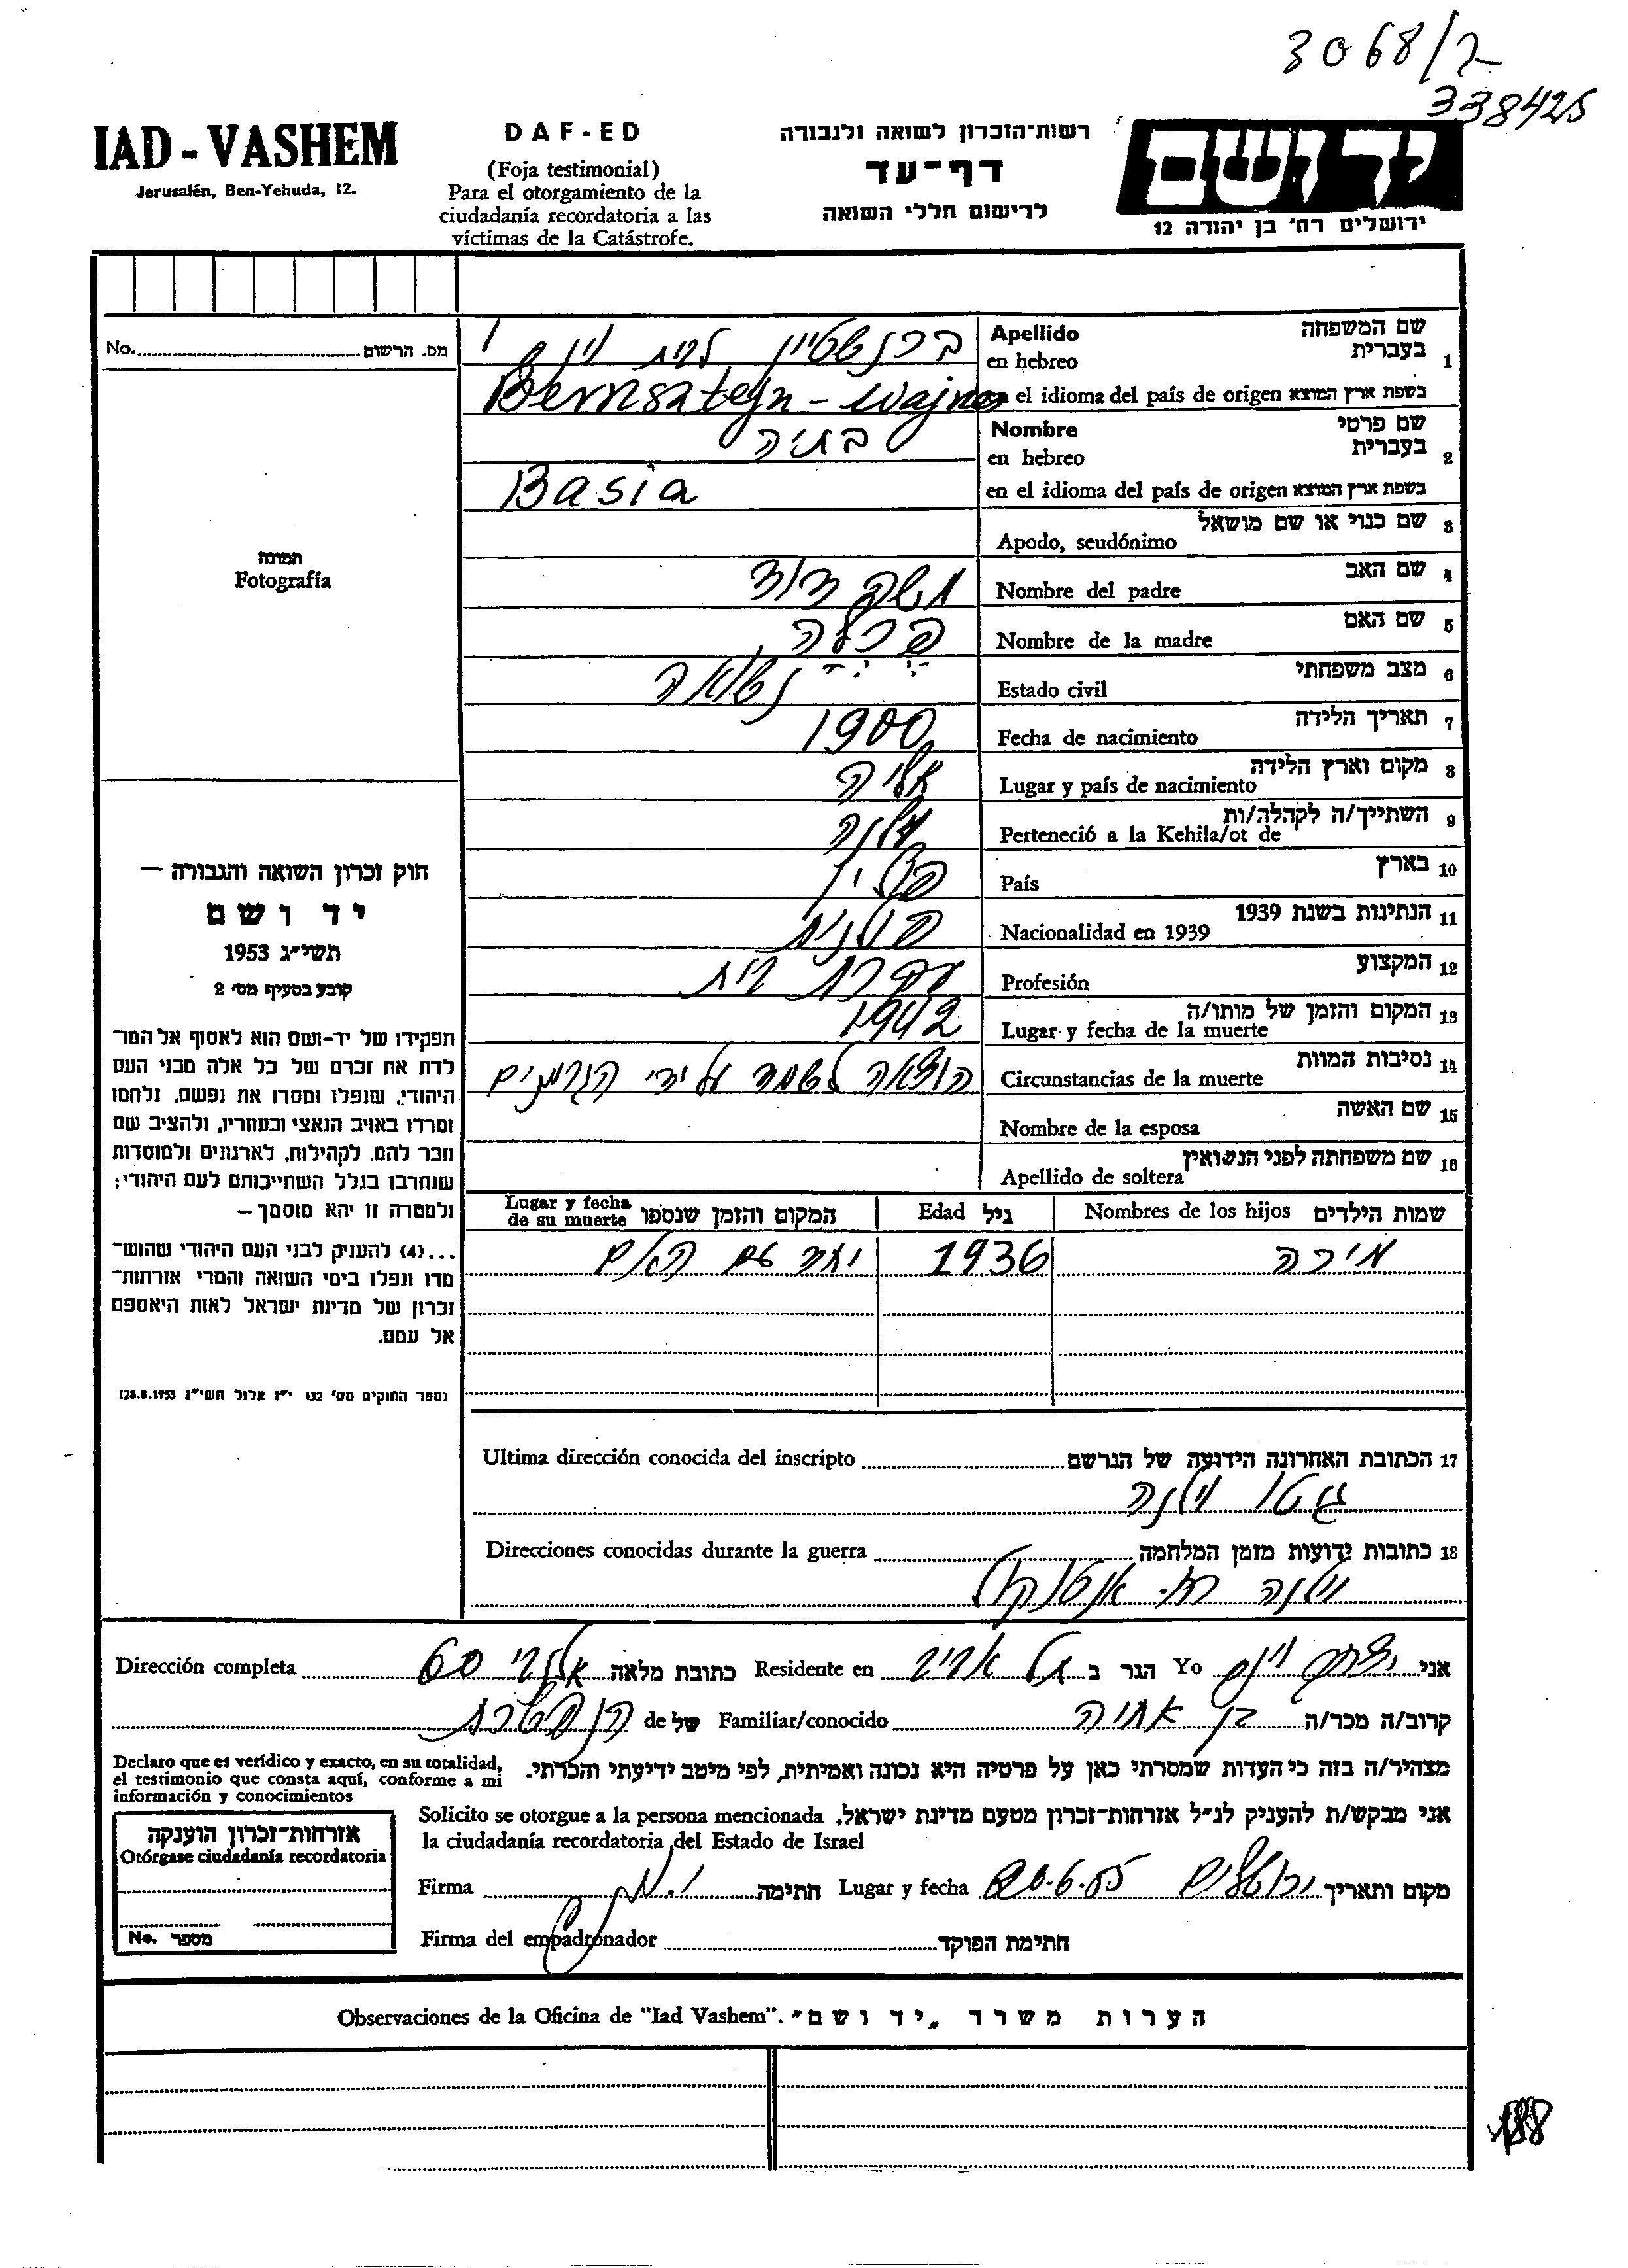 3068/2
338425
IAD - VASHEM
Jerusalén, Ben-Yehuda, 12.
DAF-ED
(Foja testimonial)
Para el otorgamiento de la
ciudadanía recordatoria a las
víctimas de la Catástrofe.
רשות־הזכרון לשואה ולגבורה
דף־עד
לרישום חללי השואה
יד ושם
ירושלים רח' בן יהודה 12
No. מס. הרשום
תמונה
Fotografía
חוק זכרון השואה והגבורה —
יד ושם
תשי״ג 1953
קובע בסעיף מס' 2
תפקידו של יד-ושם הוא לאסוף אל המו־
לדת את זכרם של כל אלה מבני העם
היהודי, שנפלו ומסרו את נפשם, נלחמו
ומרדו באויב הנאצי ובעוזריו, ולהציב שם
וזכר להם, לקהילות, לארגונים ולמוסדות
שנחרבו בגלל השתייכותם לעם היהודי;
ולמטרה זו יהא מוסמך—
...(4) להעניק לבני העם היהודי שהוש־
מדו ונפלו בימי השואה והמרי אזרחות־
זכרון של מדינת ישראל לאות היאספם
אל עמם.
(ספר החוקים מס' 132 י״ז אלול תשי״ג 28.8.1953)
1 שם המשפחה בעברית Apellido en hebreo ברנשטיין לבית וינס
בשפת ארץ המוצא en el idioma del país de origen Bernsztejn - Wajnes
2 שם פרטי בעברית Nombre en hebreo בתיה
בשפת ארץ המוצא en el idioma del país de origen Basia
3 שם כנוי או שם מושאל Apodo, seudónimo
4 שם האב Nombre del padre משה דוד
5 שם האם Nombre de la madre פרלה
6 מצב משפחתי Estado civil נשואה
7 תאריך הלידה Fecha de nacimiento 1900
8 מקום וארץ הלידה Lugar y país de nacimiento
9 השתייך/ה לקהלה/ות Perteneció a la Kehila/ot de וילנה
10 בארץ País פולין
11 הנתינות בשנת 1939 Nacionalidad en 1939 פולנית
12 המקצוע Profesión עקרת בית
13 המקום והזמן של מותו/ה Lugar y fecha de la muerte 1942
14 נסיבות המוות Circunstancias de la muerte הוצאה לשמד על ידי הגרמנים
15 שם האשה Nombre de la esposa
16 שם משפחתה לפני הנשואין Apellido de soltera
שמות הילדים Nombres de los hijos גיל Edad המקום והזמן שנספו Lugar y fecha de su muerte
מירה 1936 יחד עם האם
17 הכתובת האחרונה הידועה של הנרשם Ultima dirección conocida del inscripto
גטו וילנה
18 כתובות ידועות מזמן המלחמה Direcciones conocidas durante la guerra
וילנה רח. אנטוקול
אני יצחק וינס Yo הגר ב תל אביב Residente en כתובת מלאה 60 Dirección completa
קרוב/ה מכר/ה בן אחיה Familiar/conocido של de הנפטרת
מצהיר/ה בזה כי העדות שמסרתי כאן על פרטיה היא נכונה ואמיתית, לפי מיטב ידיעתי והכרתי.
Declaro que es verídico y exacto, en su totalidad,
el testimonio que consta aquí, conforme a mi
información y conocimientos
אני מבקש/ת להעניק לנ״ל אזרחות־זכרון מטעם מדינת ישראל. Solicito se otorgue a la persona mencionada
la ciudadanía recordatoria del Estado de Israel
מקום ותאריך ירושלים 20.6.55 Lugar y fecha חתימה Firma
חתימת הפוקד Firma del empadronador
אזרחות־זכרון הוענקה
Otórgase ciudadanía recordatoria
No. מספר
Observaciones de la Oficina de "Iad Vashem". הערות משרד „יד ושם"
188